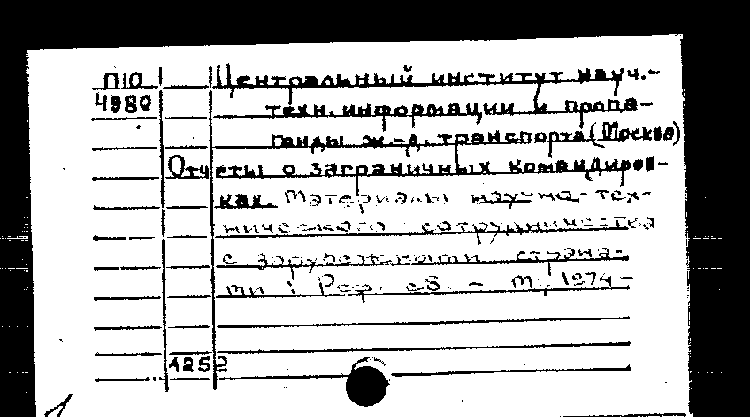 П10 Центральный институт науч.-
4980 техн. информации и пропа-
ганды ж.-д. транспорта (Москва)
Отчеты о заграничных командиров-
ках. Материалы научно-тех-
нического сотрудничества
с зарубежными страна-
ми : Реф. сб. - М., 1974-
1252